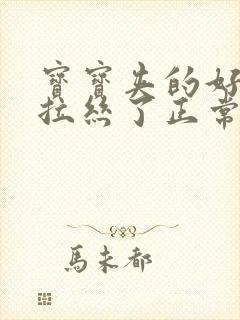 寶寶夹的好
拉絲了正常
馬未都